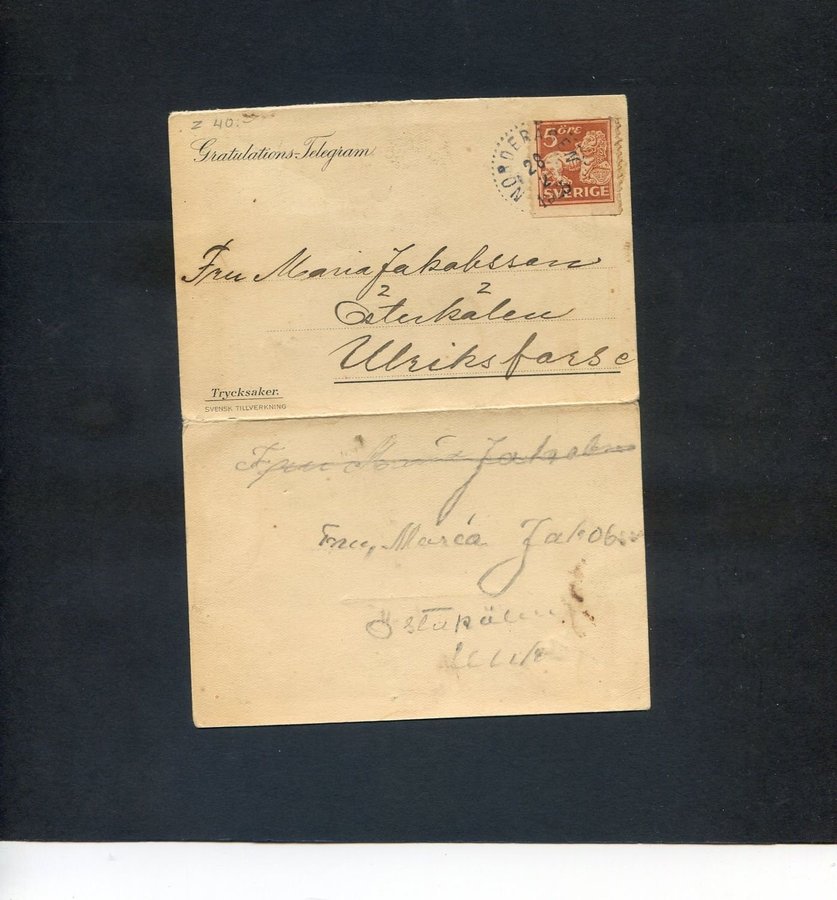 z 40:-
Gratulations-Telegram
NORDERÅSEN
28
5 ÖRE
SVERIGE
Fru Maria Jakobsson
2 2
Österkälen
Ulriksfors
Trycksaker.
SVENSK TILLVERKNING
Fru Maria Jakobsson
Fru, Maria Jakobsson